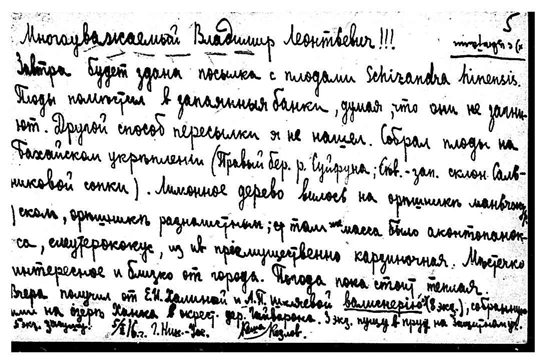 5
Многоуважаемый Владимир Леонтьевич!!!
Завтра будет сдана посылка с плодами Schizandra hinensis.
Плоды поместил в запаянныя банки, думая, что они не загни-
ют. Другой способ пересылки я не нашел. Собрал плоды на
укреплении (Правый бер. р. Суйфуна; Сев.-зап. склон
никовой сопки). Лимонное дерево вилось на орешнике маньчжур
ском, орешнике разнолистным; там масса было акантопанок-
са, элеутерококус, из ив преимущественно Местечко
интересное и близко от города. Погода пока стоит теплая.
Вчера получил от Е.Н. и А.П. валиснерию (8 экз.), собранную
ими на озере Ханка в окрест. дер. 3 экз. пущу в пруд на
5 экз. засушу. г. Ник.-Усс. Козлов.